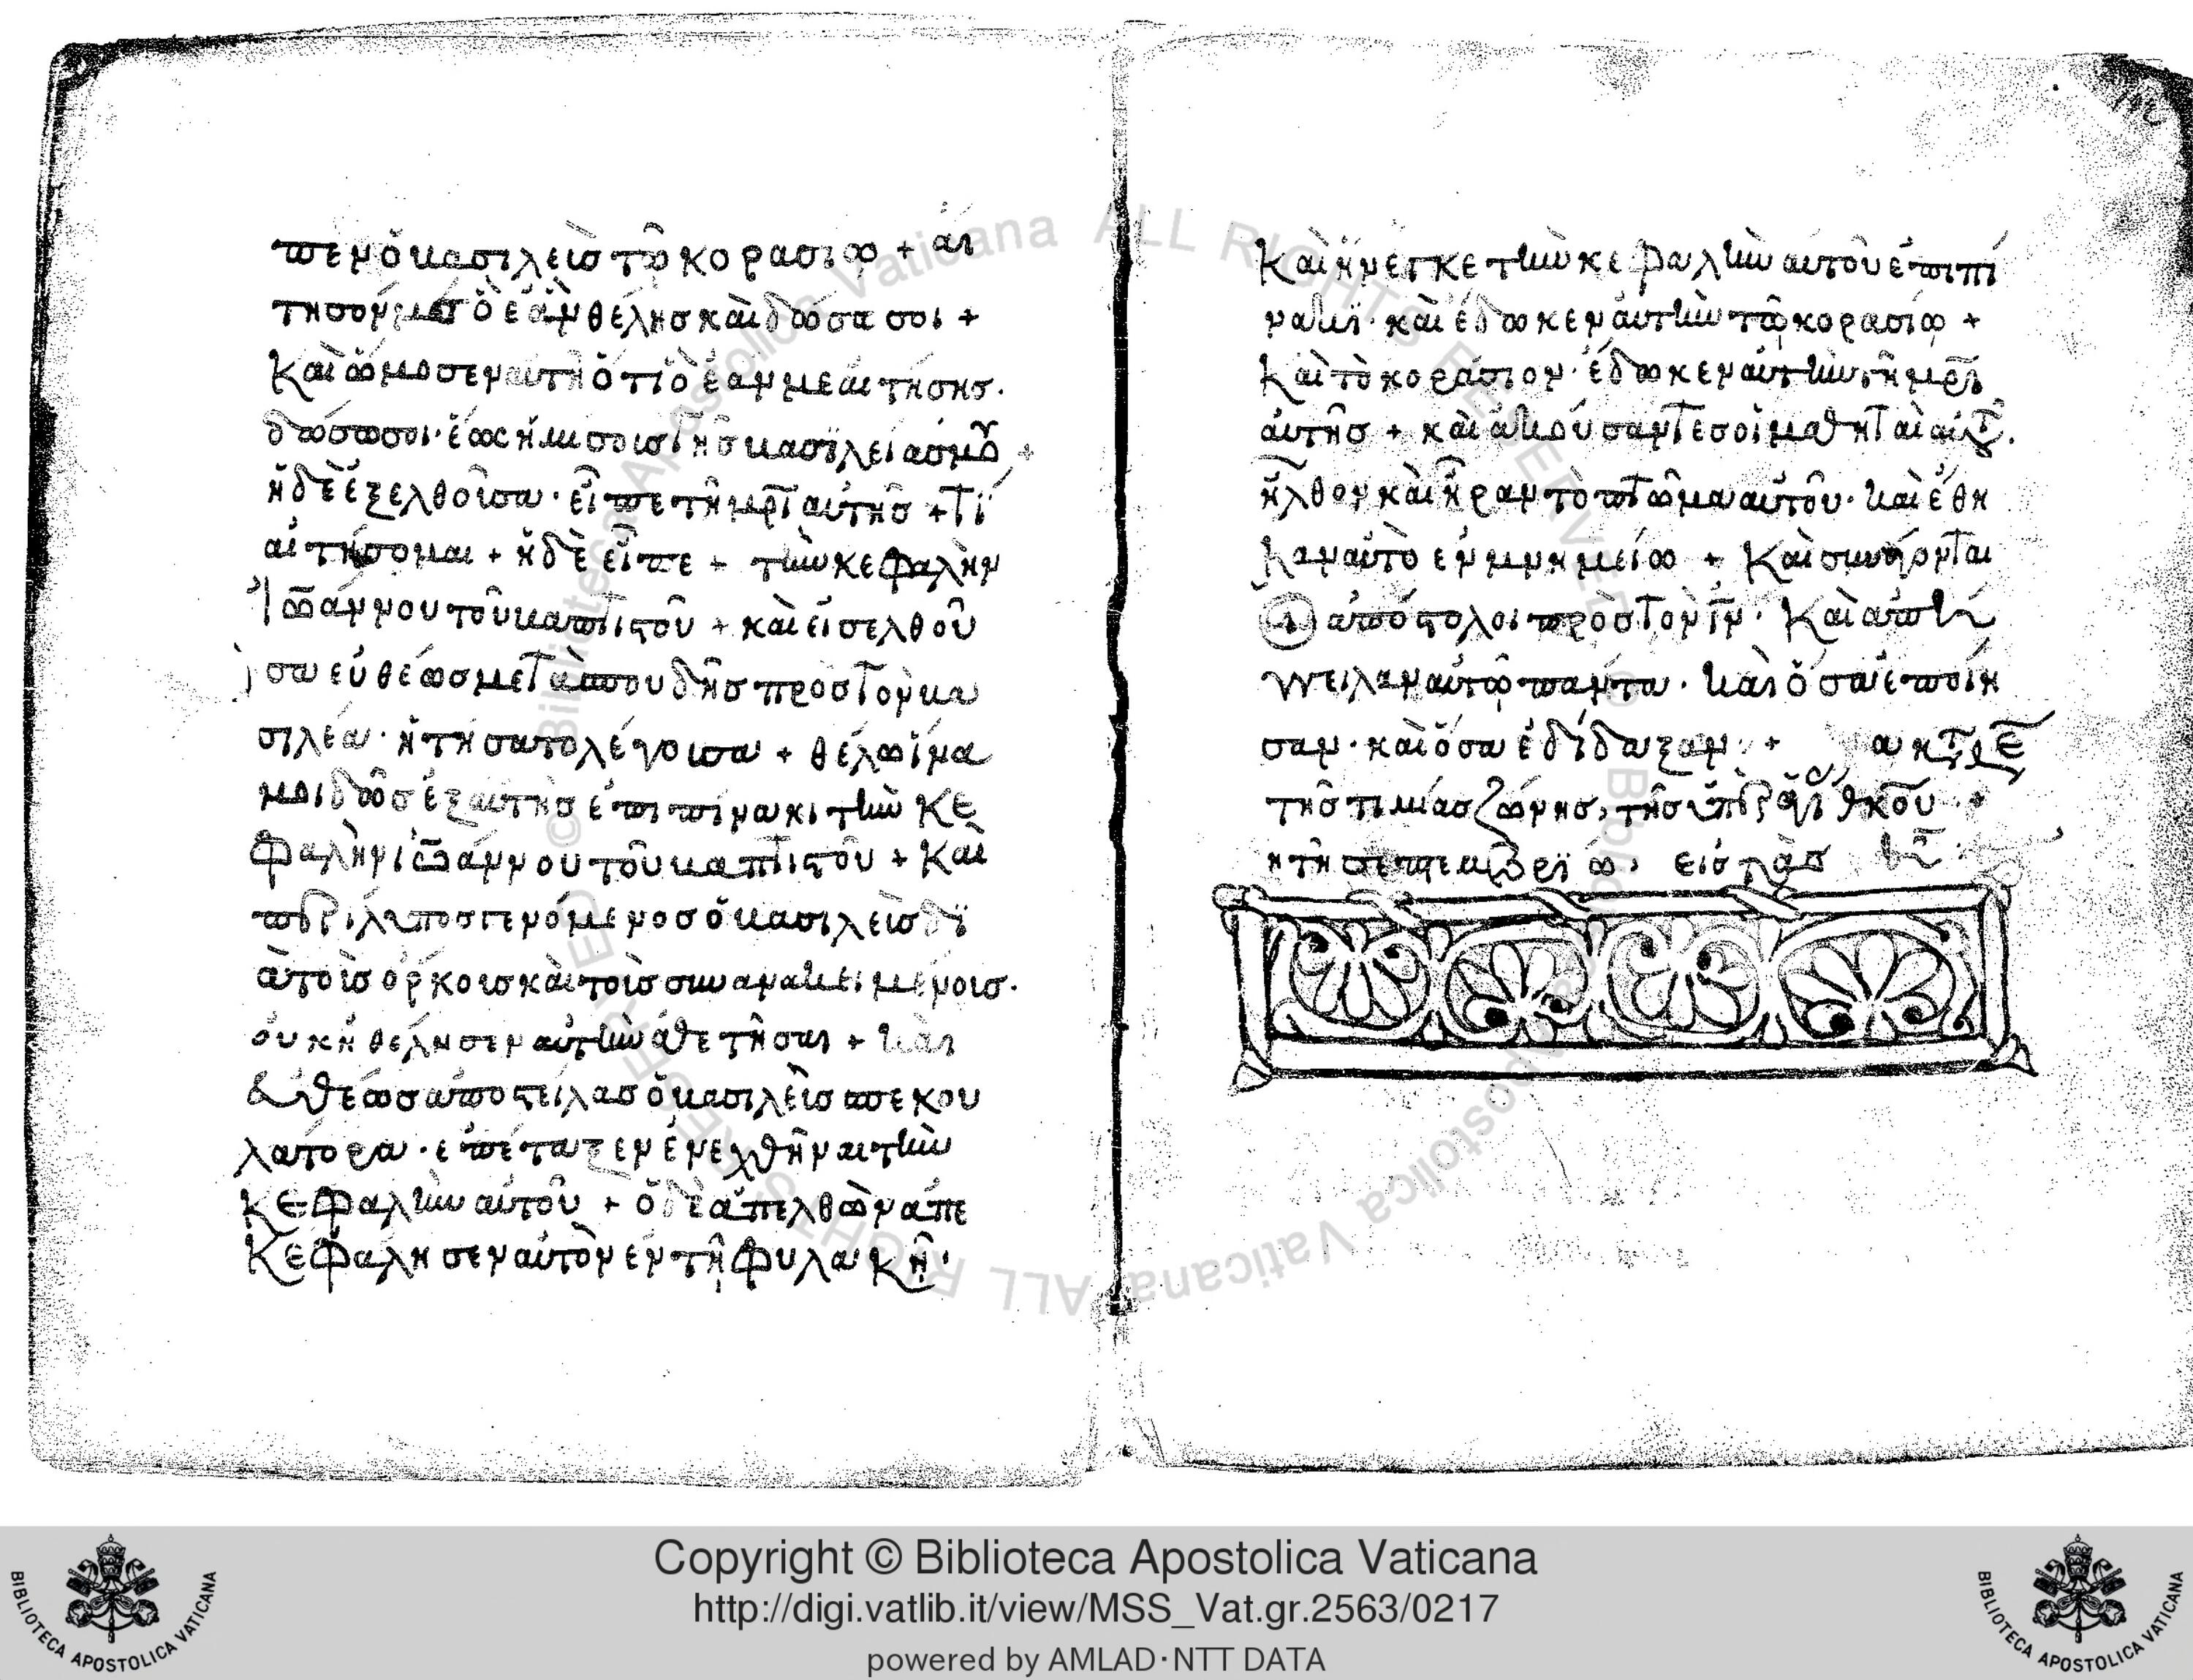 πεν ὁ βασιλεὺς τῶ κορασίω + αἴ
τησόν με ὃ ἐὰν θέλης καὶ δώσω σοι +
Καὶ ὤμοσεν αὐτῆ ὅτι ὃ ἐάν με αἰτήσης·
δώσω σοι· ἕως ἡμίσους τῆς βασιλείας μου +
ἡ δὲ ἐξελθοῦσα· εἶπε τῆ μρι αὐτῆς + Τί
αἰτήσομαι + ἡ δὲ εἶπε + τὴν κεφαλὴν
Ἰωάννου τοῦ βαπτιστοῦ + καὶ εἰσελθοῦ
σα εὐθέως μετὰ σπουδῆς πρὸς τὸν βα
σιλέα· ἠτήσατο λέγουσα + θέλω ἵνα
μοι δῶς ἐξαυτῆς ἐπὶ πίνακι τὴν κε
φαλὴν ἰωάννου τοῦ βαπτιστοῦ + Καὶ
περίλυπος γενόμενος ὁ βασιλεὺς δι
ὰ τοὺς ὅρκους καὶ τοὺς συνανακειμένους·
οὐκ ἠθέλησεν αὐτὴν ἀθετῆσαι + καὶ
εὐθέως ἀποστείλας ὁ βασιλεὺς σπεκου
λάτορα· ἐπέταξεν ἐνεχθῆναι τὴν
κεφαλὴν αὐτοῦ + ὁ δὲ ἀπελθὼν ἀπε
κεφάλησεν αὐτὸν ἐν τῆ φυλακῆ·
Καὶ ἤνεγκε τὴν κεφαλὴν αὐτοῦ ἐπὶ πί
νακι· καὶ ἔδωκεν αὐτὴν τῶ κορασίω +
Καὶ τὸ κοράσιον· ἔδωκεν αὐτὴν τῆ μρι
αὐτῆς + καὶ ἀκούσαντες οἱ μαθηταὶ αὐτ.
ἦλθον καὶ ἦραν τὸ πτῶμα αὐτοῦ· καὶ ἔθη
καν αὐτὸ ἐν μνημείω + Καὶ συνάγονται
οἱ ἀπόστολοι πρὸς τὸν ιν· Καὶ ἀπήγ
γειλαν αὐτῶ πάντα· καὶ ὅσα ἐποίη
σαν· καὶ ὅσα ἐδίδαξαν· +
τῆς τιμίας ζώνης, τῆς ὑπεραγ θκου +
σεπτεμβρίω, εἰς
Copyright © Biblioteca Apostolica Vaticana
http://digi.vatlib.it/view/MSS_Vat.gr.2563/0217
powered by AMLAD·NTT DATA